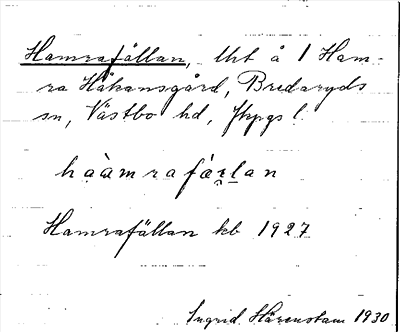 Hamrafällan, lht å 1 Ham-
ra Håkansgård, Bredaryds
sn, Västbo hd, Jkpgs l.
hàamrafàr̥lan
Hamrafällan kb 1927
Ingrid Härenstam 1930